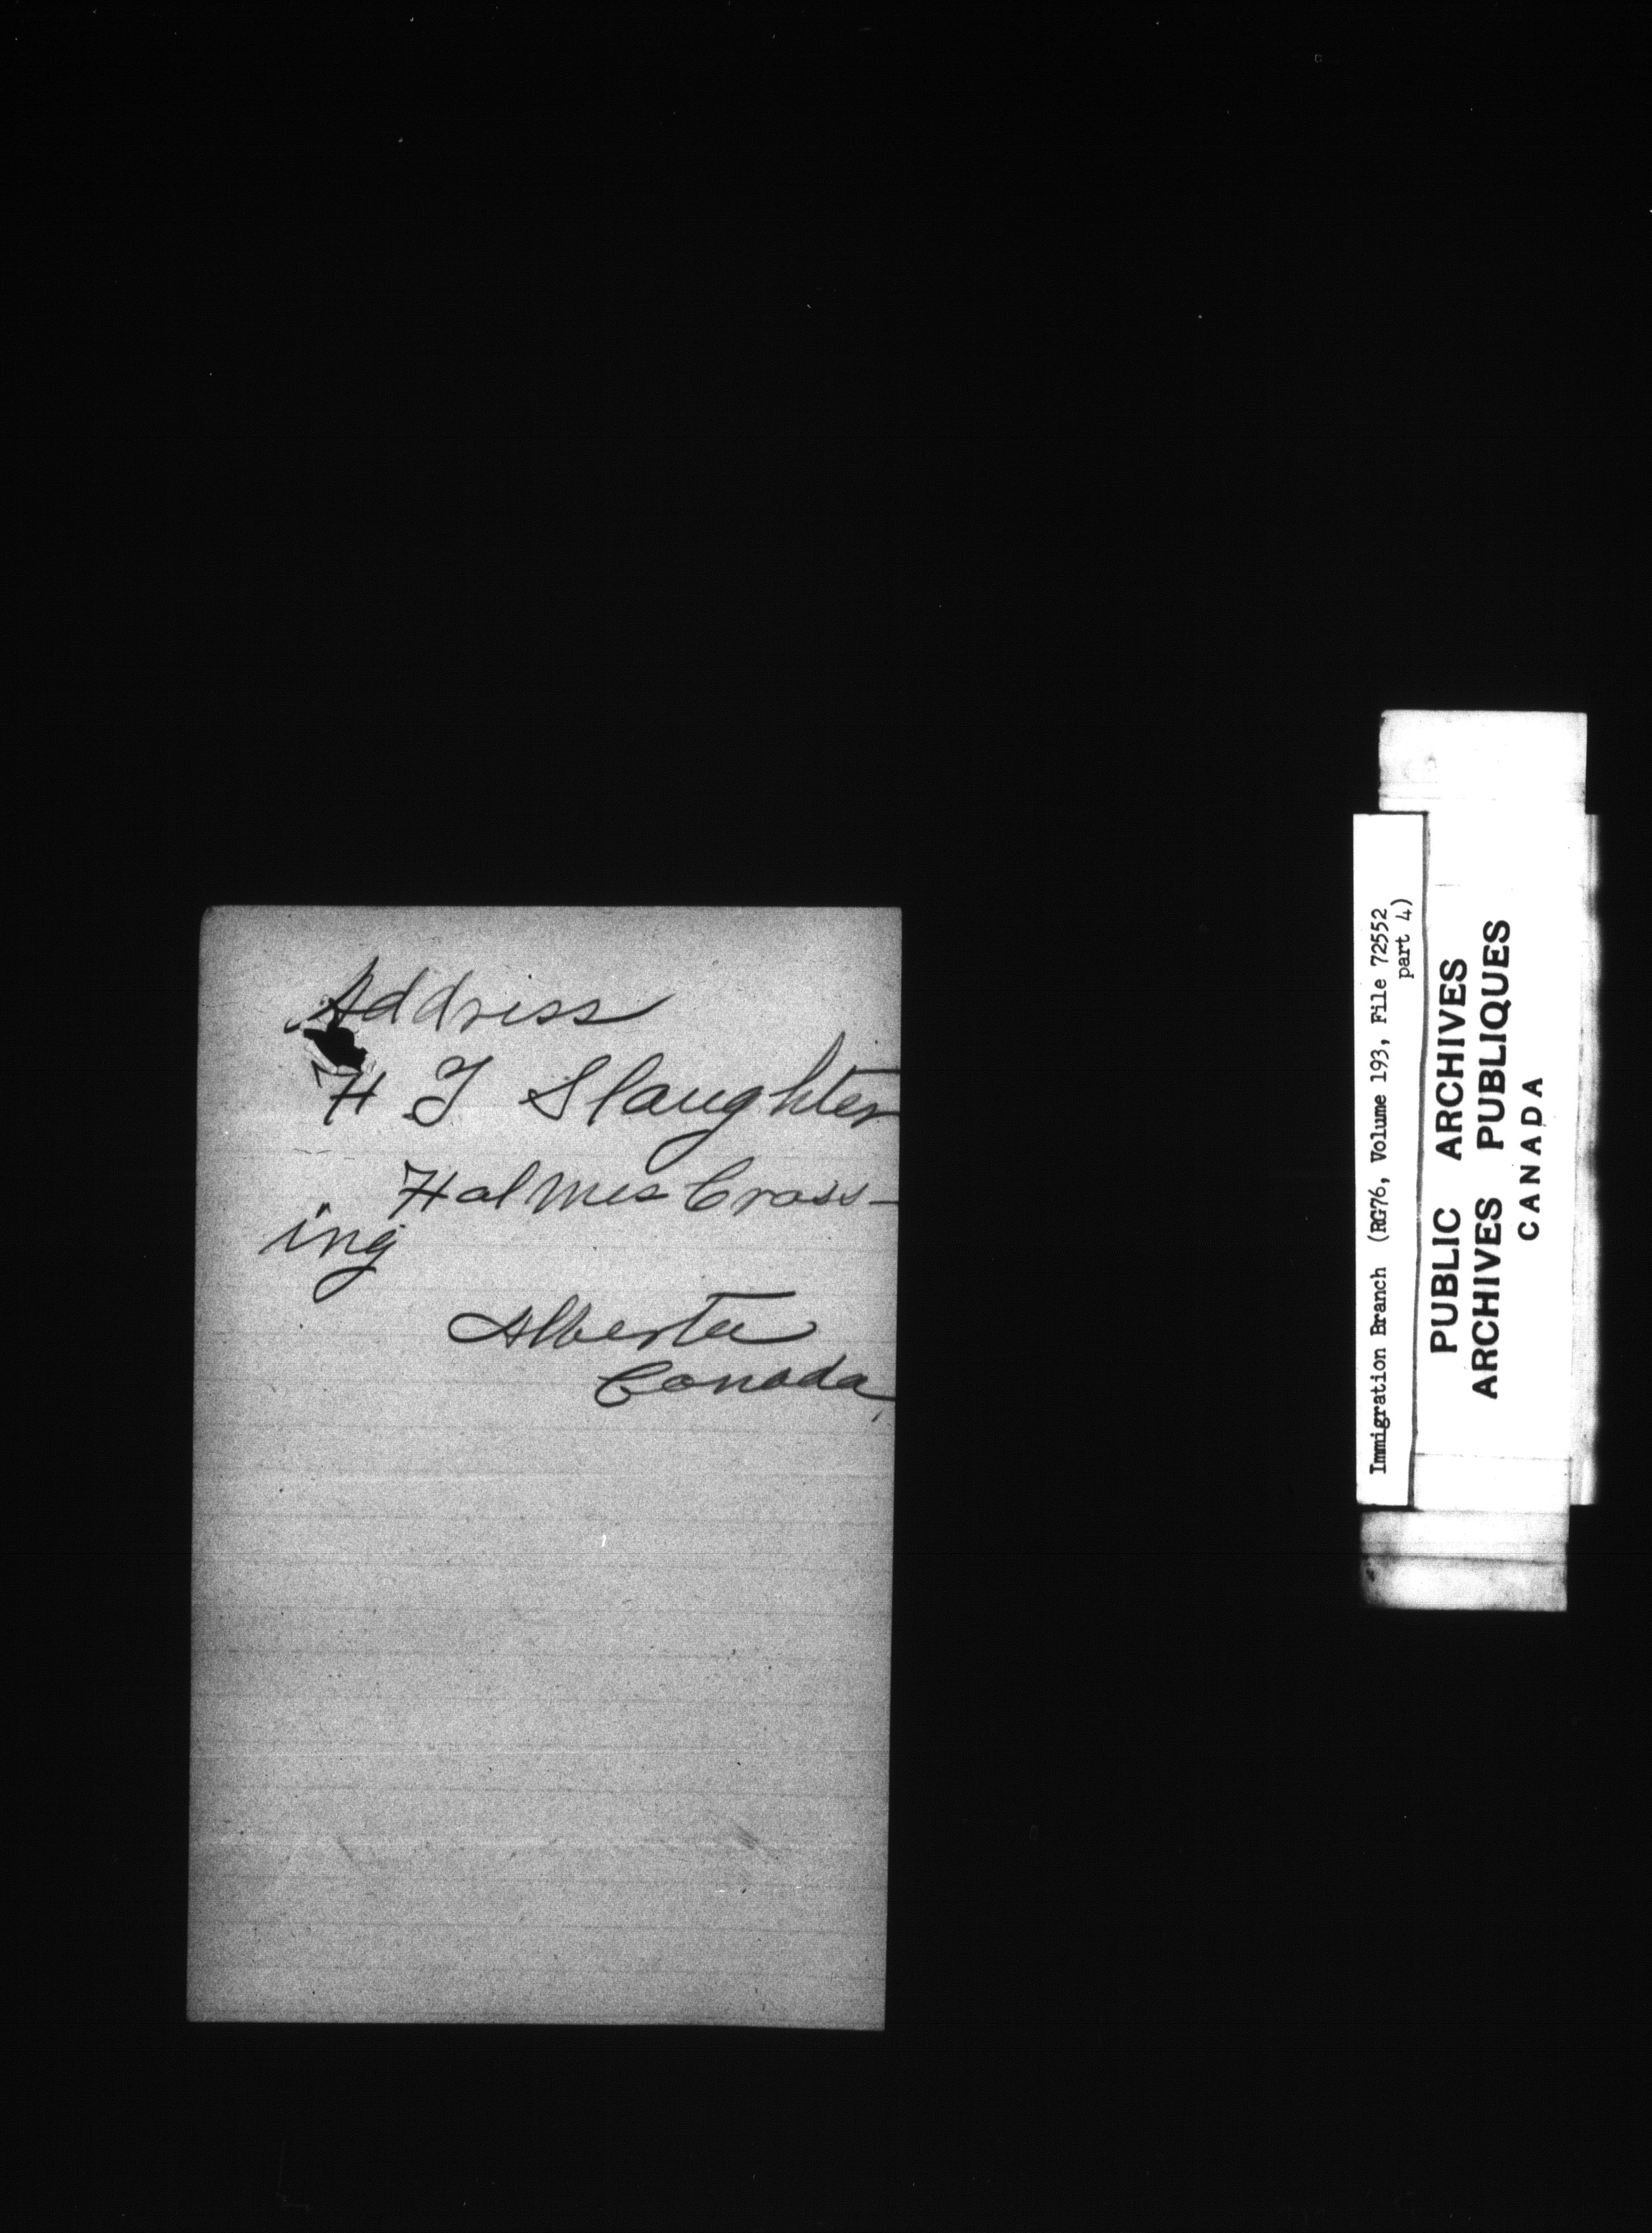 Address
H. J Slaughter
Holmes Cross-
ing
Alberta
Canada,
Immigration Branch (RG76, Volume 193, File 72552
part 4)
PUBLIC ARCHIVES
ARCHIVES PUBLIQUES
CANADA